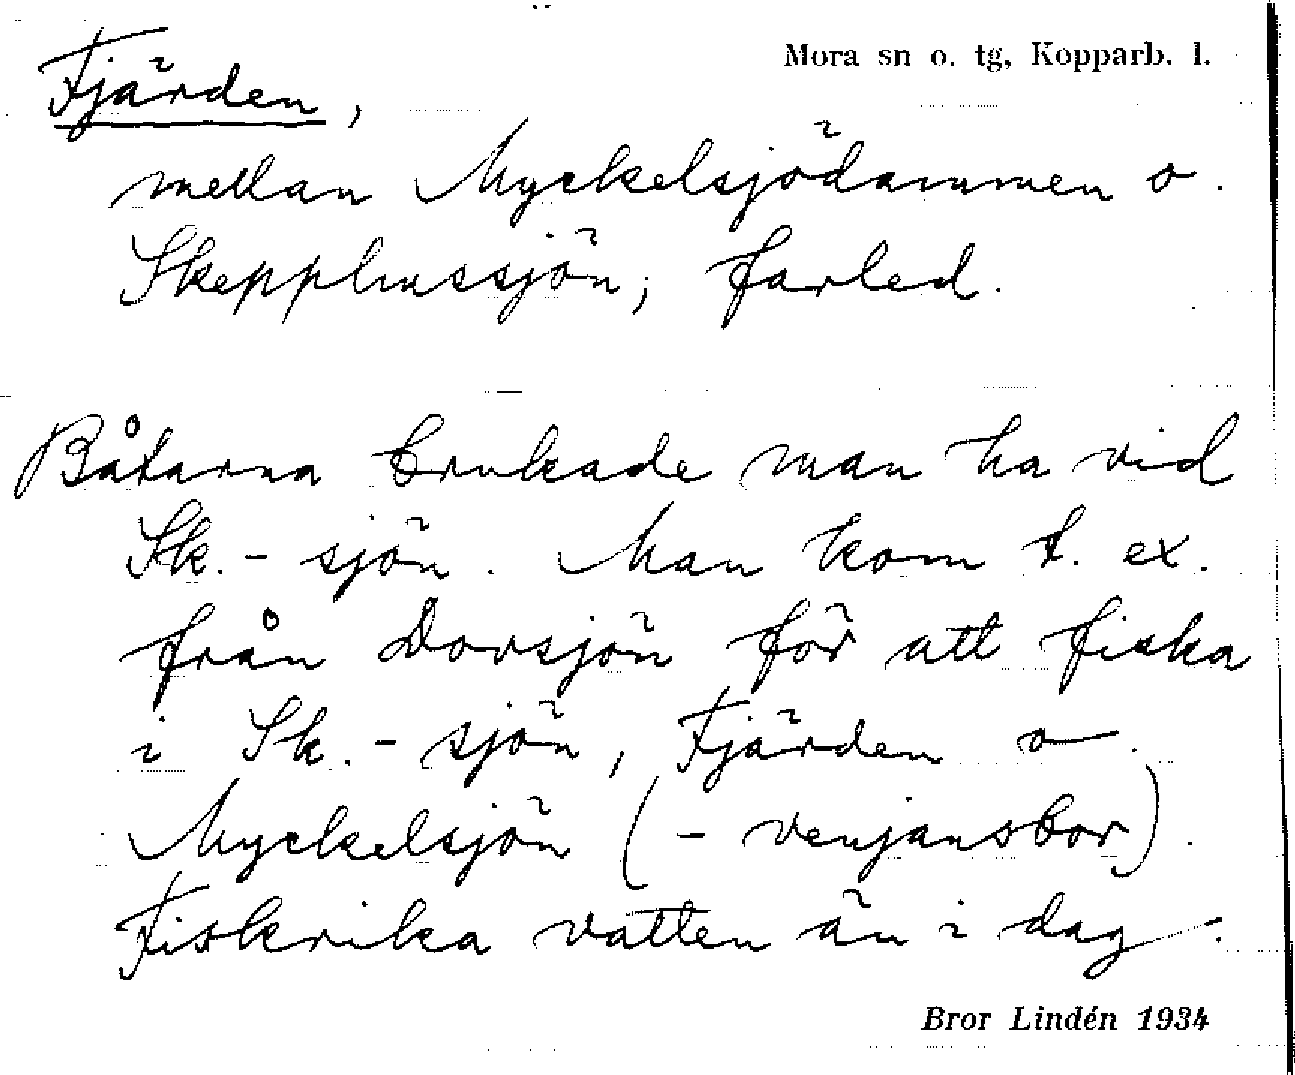 Mora sn o. tg, Kopparb. l.
Fjärden,
mellan Myckelsjödammen o.
Skepphussjön; farled.
Båtarna brukade man ha vid
Sk.-sjön. Man kom t. ex.
från Dovsjön för att fiska
i Sk.-sjön, Fjärden o.
Myckelsjön (- venjansbor).
Fiskrika vatten än i dag.
Bror Lindén 1934